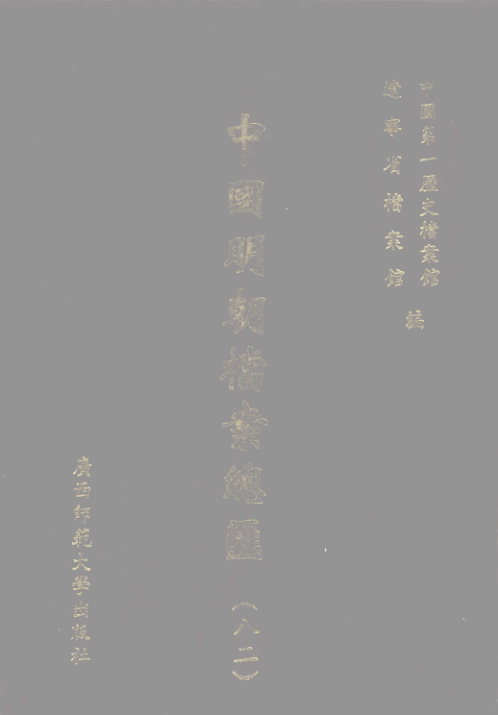 中國第一歷史檔案館
遼寧省檔案館
編
中國明朝檔案總匯
(八二)
廣西師範大學出版社